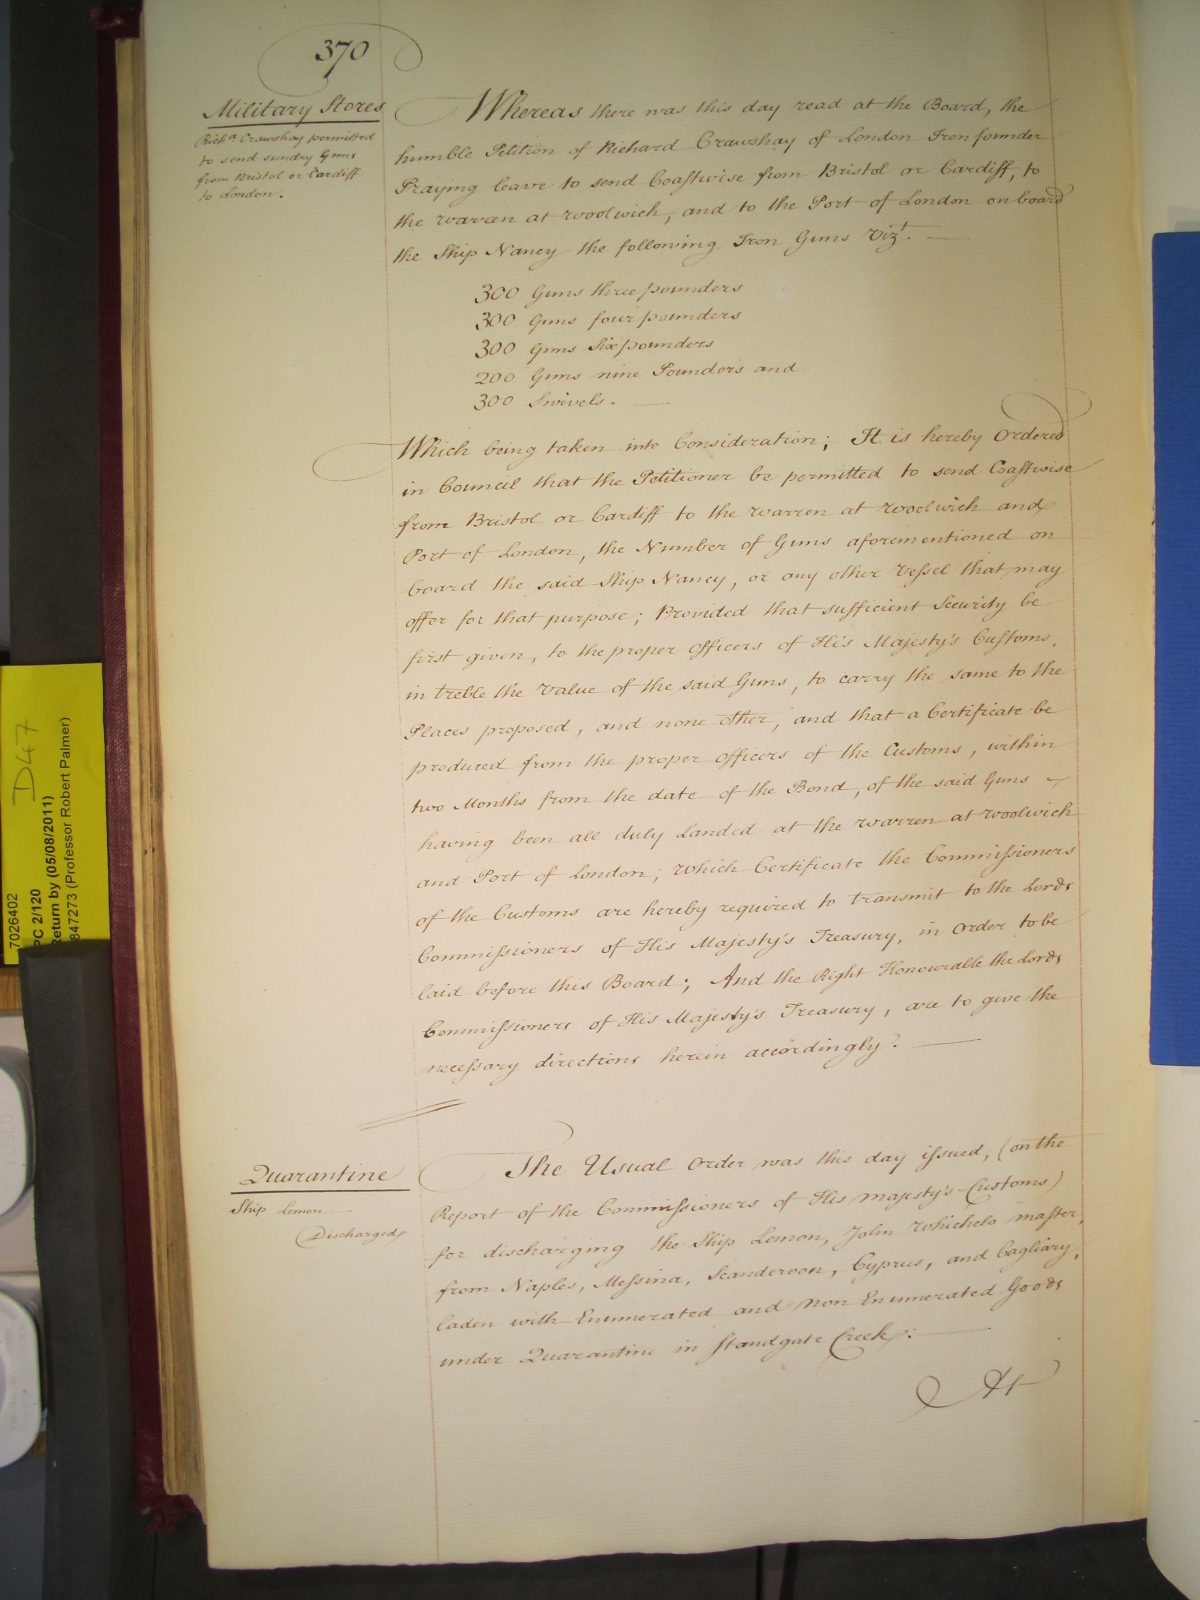 370
Military Stores
Rich.d Crawshay permitted
to send sundry Guns
from Bristol or Cardiff
to London.
Whereas there was this day read at the Board, the
humble Petition of Richard Crawshay of London Ironfounder
Praying leave to send Coastwise from Bristol or Cardiff, to
the Warren at Woolwich, and to the Port of London on board
the Ship Nancy the following Iron Guns Viz.t
300 Guns three pounders
300 Guns four pounders
300 Guns Six pounders
200 Guns nine Pounders and
300 Swivels.
Which being taken into Consideration; It is hereby Ordered
in Council that the Petitioner be permitted to send Coastwise
from Bristol or Cardiff to the Warren at Woolwich and
Port of London, the Number of Guns aforementioned on
board the said Ship Nancy, or any other Vessel that may
offer for that purpose; Provided that sufficient Security be
first given, to the proper Officers of His Majesty's Customs,
in treble the Value of the said Guns, to carry the same to the
Places proposed, and none other, and that a Certificate be
produced from the proper Officers of the Customs, within
two Months from the date of the Bond, of the said Guns
having been all duly Landed at the Warren at Woolwich
and Port of London; Which Certificate the Commissioners
of the Customs are hereby required to transmit to the Lords
Commissioners of His Majesty's Treasury, in Order to be
laid before this Board; And the Right Honourable the Lords
Commissioners of His Majesty's Treasury, are to give the
necessary directions herein accordingly.
Quarantine
Ship Lemon
Discharged
The Usual Order was this day issued, (on the
Report of the Commissioners of His Majesty's Customs)
for discharging the Ship Lemon, John Whichelo Master,
from Naples, Messina, Scanderoon, Cyprus, and Cagliary,
laden with Enumerated and non Enumerated Goods
under Quarantine in Standgate Creek:
At
D47
7026402
PC 2/120
Return by (05/08/2011)
847273 (Professor Robert Palmer)